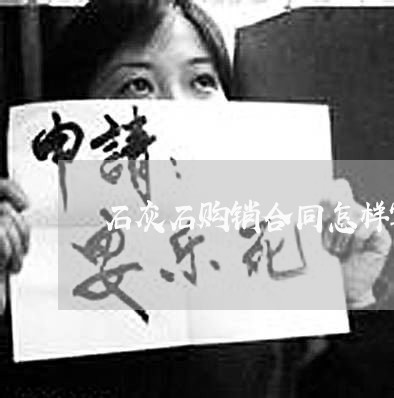 申請：
石灰石购销合同怎样
安乐死